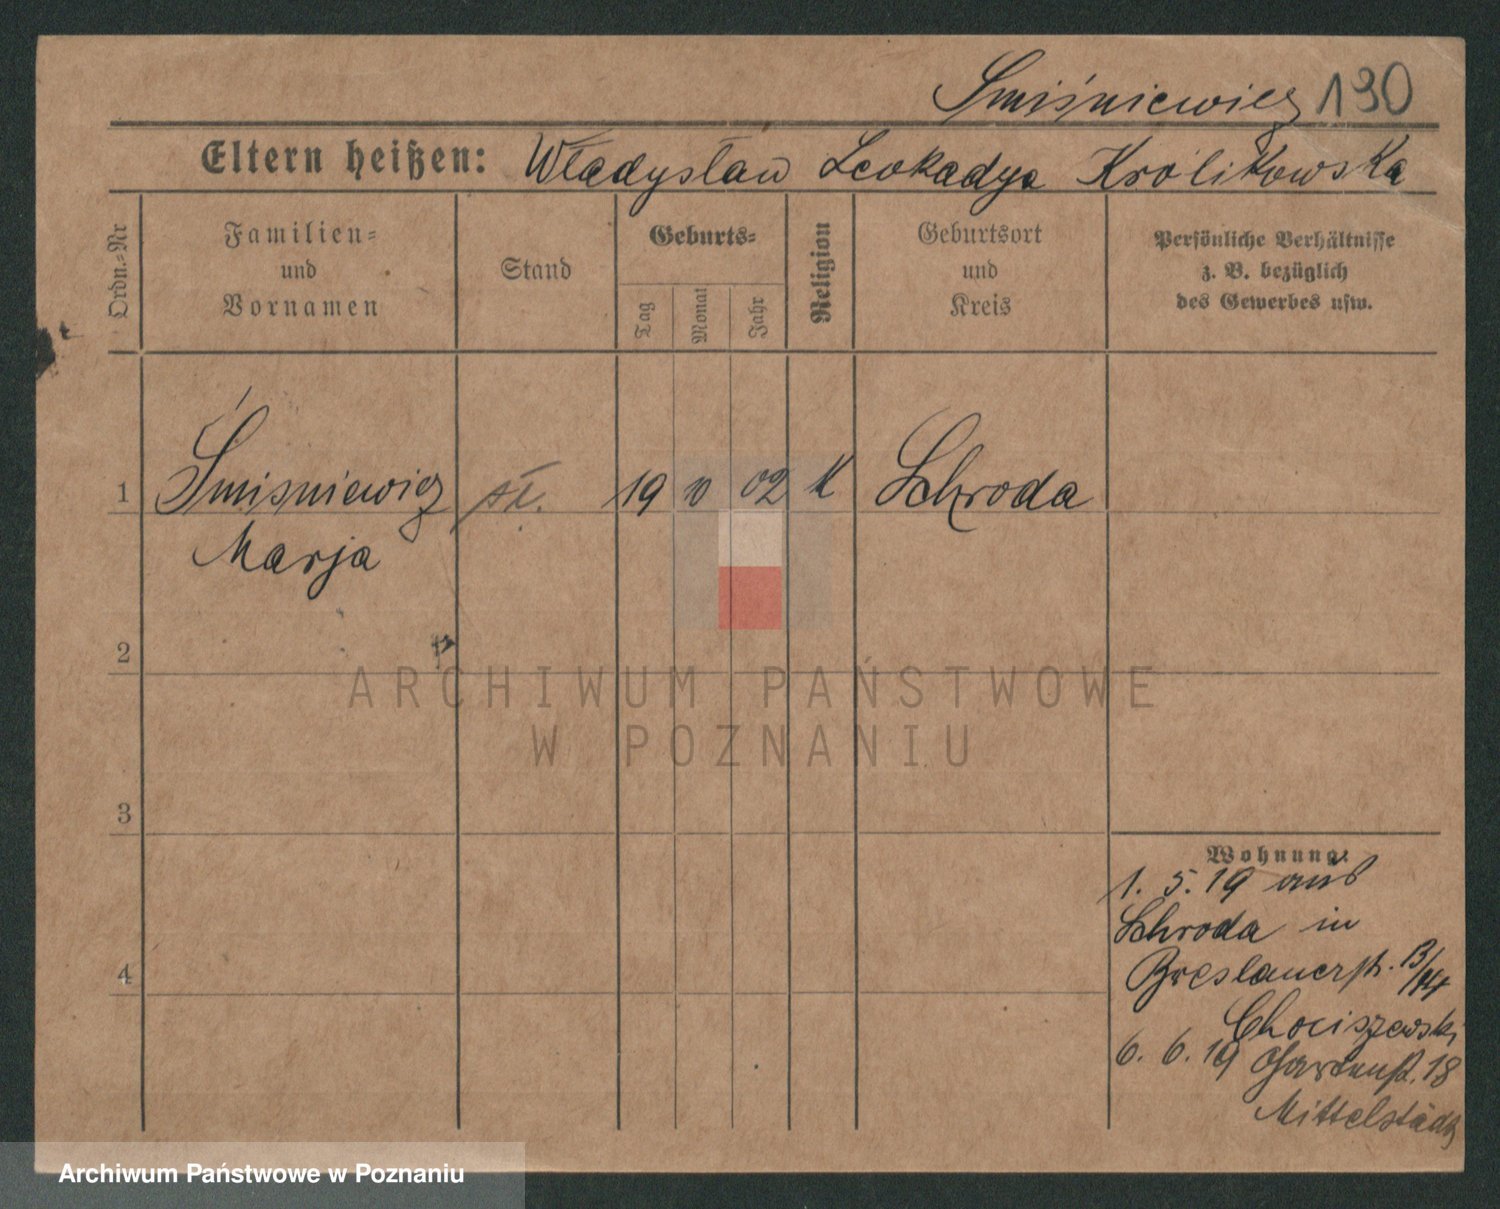 Śmiśniewicz 190
Eltern heißen: Władysław Leokadya Królikowska
Ordn.-Nr
Familien-
und
Vornamen
Stand
Geburts-
Tag
Monat
Jahr
Religion
Geburtsort
und
Kreis
Persönliche Verhältnisse
z. B. bezüglich
des Gewerbes usw.
1 Śmisniewicz 19 10 02 K Schroda
Marja
2
3
4
Wohnung:
1. 5. 19 aus
Schroda in
Breslauerstr. 13/14
Chociszewski
6. 6. 19 Gartenstr. 18
Mittelstädt
ARCHIWUM PAŃSTWOWE
W POZNANIU
Archiwum Państwowe w Poznaniu